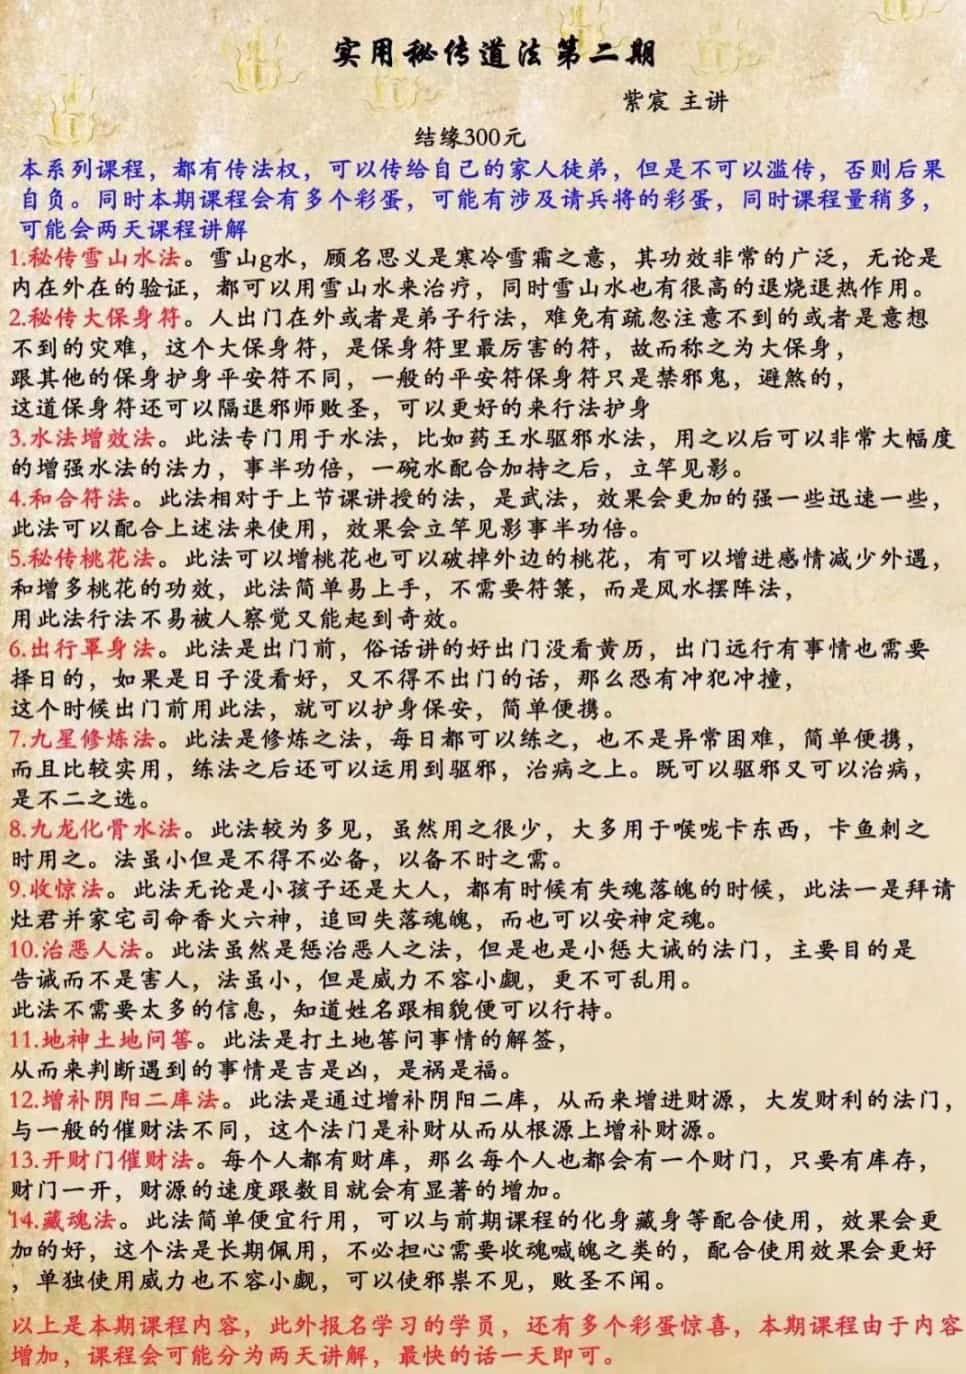 实用秘传道法第二期
紫宸 主讲
结缘300元
本系列课程，都有传法权，可以传给自己的家人徒弟，但是不可以滥传，否则后果
自负。同时本期课程会有多个彩蛋，可能有涉及请兵将的彩蛋，同时课程量稍多，
可能会两天课程讲解
1.秘传雪山水法。雪山g水，顾名思义是寒冷雪霜之意，其功效非常的广泛，无论是
内在外在的验证，都可以用雪山水来治疗，同时雪山水也有很高的退烧退热作用。
2.秘传大保身符。人出门在外或者是弟子行法，难免有疏忽注意不到的或者是意想
不到的灾难，这个大保身符，是保身符里最厉害的符，故而称之为大保身，
跟其他的保身护身平安符不同，一般的平安符保身符只是禁邪鬼，避煞的，
这道保身符还可以隔退邪师败圣，可以更好的来行法护身
3.水法增效法。此法专门用于水法，比如药王水驱邪水法，用之以后可以非常大幅度
的增强水法的法力，事半功倍，一碗水配合加持之后，立竿见影。
4.和合符法。此法相对于上节课讲授的法，是武法，效果会更加的强一些迅速一些，
此法可以配合上述法来使用，效果会立竿见影事半功倍。
5.秘传桃花法。此法可以增桃花也可以破掉外边的桃花，有可以增进感情减少外遇，
和增多桃花的功效，此法简单易上手，不需要符箓，而是风水摆阵法，
用此法行法不易被人察觉又能起到奇效。
6.出行罩身法。此法是出门前，俗话讲的好出门没看黄历，出门远行有事情也需要
择日的，如果是日子没看好，又不得不出门的话，那么恐有冲犯冲撞，
这个时候出门前用此法，就可以护身保安，简单便携。
7.九星修炼法。此法是修炼之法，每日都可以练之，也不是异常困难，简单便携，
而且比较实用，练法之后还可以运用到驱邪，治病之上。既可以驱邪又可以治病，
是不二之选。
8.九龙化骨水法。此法较为多见，虽然用之很少，大多用于喉咙卡东西，卡鱼刺之
时用之。法虽小但是不得不必备，以备不时之需。
9.收惊法。此法无论是小孩子还是大人，都有时候有失魂落魄的时候，此法一是拜请
灶君并家宅司命香火六神，追回失落魂魄，而也可以安神定魂。
10.治恶人法。此法虽然是惩治恶人之法，但是也是小惩大诫的法门，主要目的是
告诫而不是害人，法虽小，但是威力不容小觑，更不可乱用。
此法不需要太多的信息，知道姓名跟相貌便可以行持。
11.地神土地问筶。此法是打土地筶问事情的解签，
从而来判断遇到的事情是吉是凶，是祸是福。
12.增补阴阳二库法。此法是通过增补阴阳二库，从而来增进财源，大发财利的法门，
与一般的催财法不同，这个法门是补财从而从根源上增补财源。
13.开财门催财法。每个人都有财库，那么每个人也都会有一个财门，只要有库存，
财门一开，财源的速度跟数目就会有显著的增加。
14.藏魂法。此法简单便宜行用，可以与前期课程的化身藏身等配合使用，效果会更
加的好，这个法是长期佩用，不必担心需要收魂喊魄之类的，配合使用效果会更好
，单独使用威力也不容小觑，可以使邪祟不见，败圣不闻。
以上是本期课程内容，此外报名学习的学员，还有多个彩蛋惊喜，本期课程由于内容
增加，课程会可能分为两天讲解，最快的话一天即可。